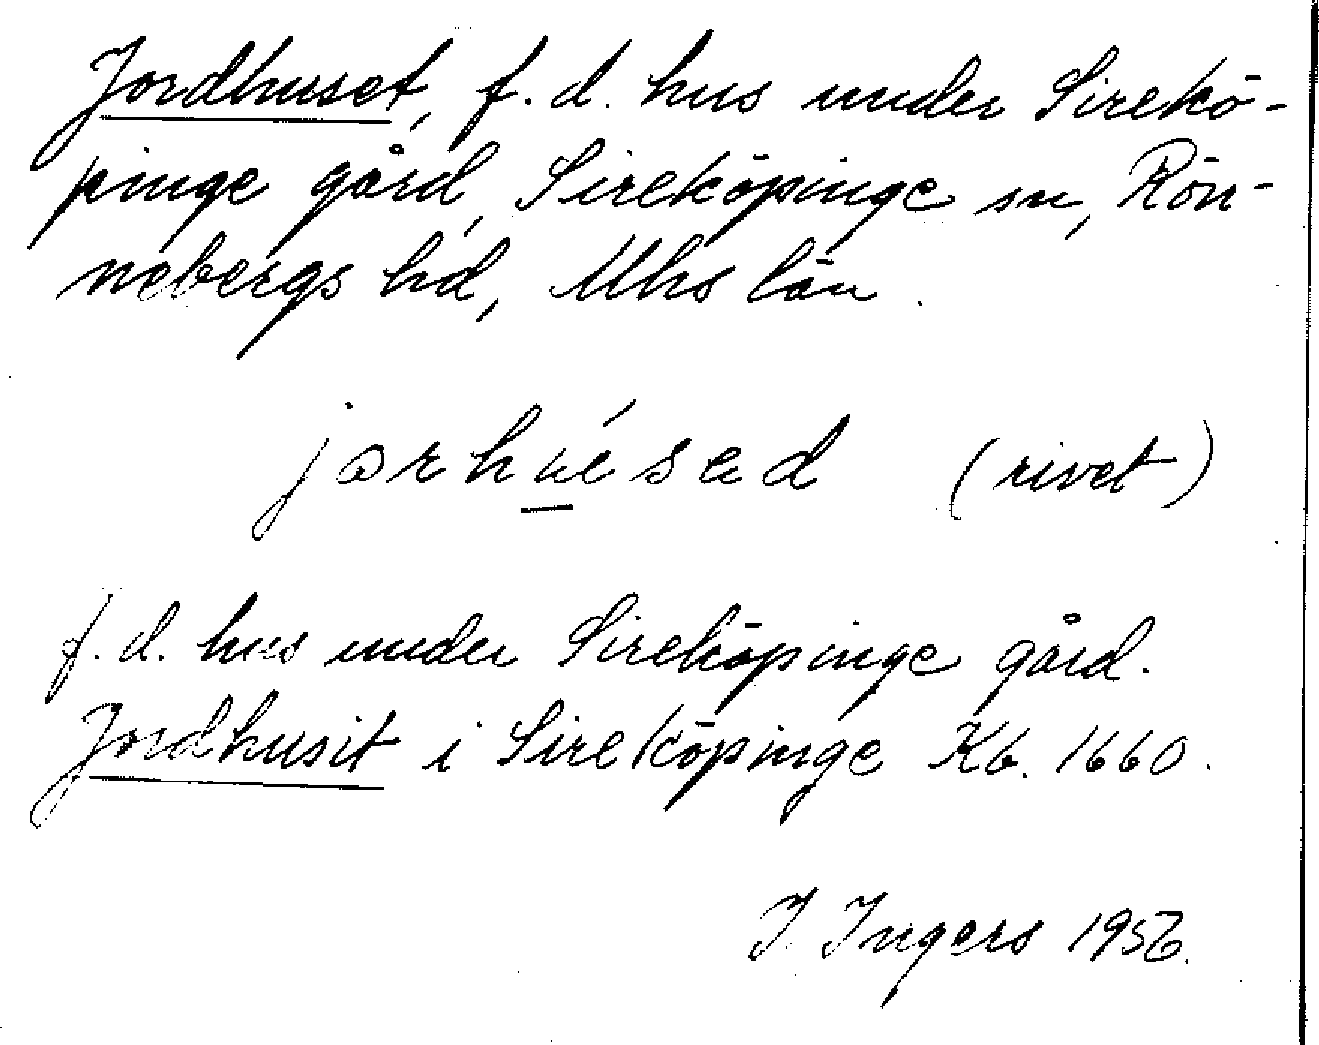 Jordhuset, f. d. hus under Sirekö-
pinge gård, Sireköpinge sn, Rön-
nebergs hd, Mhs län.
jorhu̲ésad (rivet)
f. d. hus under Sireköpinge gård.
Jordhusit i Sireköpinge Kb. 1660.
I. Ingers 1956.